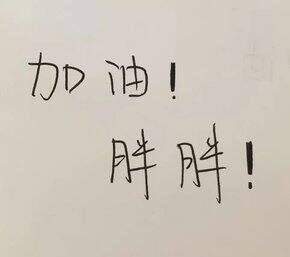 加油!
胖胖!